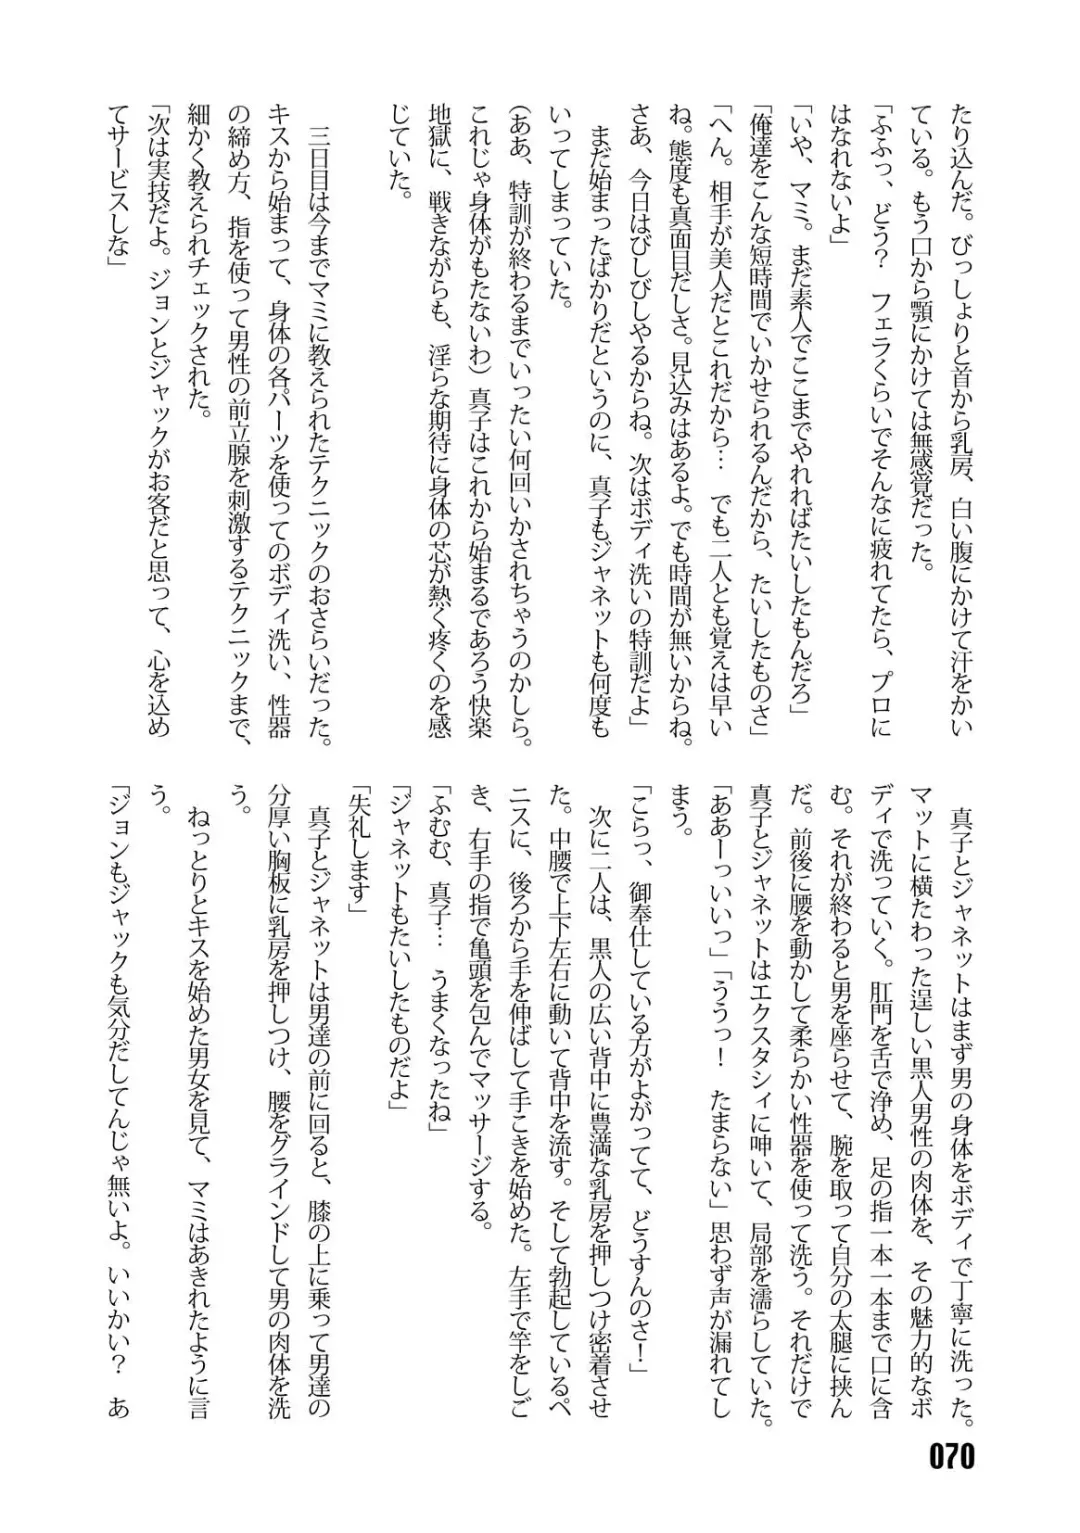 たり込んだ。びっしょりと首から乳房、白い腹にかけて汗をかい
ている。もう口から顎にかけては無感覚だった。
「ふふっ、どう？　フェラくらいでそんなに疲れてたら、プロに
はなれないよ」
「いや、マミ。まだ素人でここまでやれればたいしたもんだろ」
「俺達をこんな短時間でいかせられるんだから、たいしたものさ」
「へん。相手が美人だとこれだから…　でも二人とも覚えは早い
ね。態度も真面目だしさ。見込みはあるよ。でも時間が無いからね。
さあ、今日はびしびしやるからね。次はボディ洗いの特訓だよ」
　まだ始まったばかりだというのに、真子もジャネットも何度も
いってしまっていた。
（ああ、特訓が終わるまでいったい何回いかされちゃうのかしら。
これじゃ身体がもたないわ）真子はこれから始まるであろう快楽
地獄に、戦きながらも、淫らな期待に身体の芯が熱く疼くのを感
じていた。
　三日目は今までマミに教えられたテクニックのおさらいだった。
キスから始まって、身体の各パーツを使ってのボディ洗い、性器
の締め方、指を使って男性の前立腺を刺激するテクニックまで、
細かく教えられチェックされた。
「次は実技だよ。ジョンとジャックがお客だと思って、心を込め
てサービスしな」
　真子とジャネットはまず男の身体をボディで丁寧に洗った。
マットに横たわった逞しい黒人男性の肉体を、その魅力的なボ
ディで洗っていく。肛門を舌で浄め、足の指一本一本まで口に含
む。それが終わると男を座らせて、腕を取って自分の太腿に挟ん
だ。前後に腰を動かして柔らかい性器を使って洗う。それだけで
真子とジャネットはエクスタシィに呻いて、局部を濡らしていた。
「ああーっいいっ」「ううっ！　たまらない」思わず声が漏れてし
まう。
「こらっ、御奉仕している方がよがってて、どうすんのさ！」
　次に二人は、黒人の広い背中に豊満な乳房を押しつけ密着させ
た。中腰で上下左右に動いて背中を流す。そして勃起しているペ
ニスに、後ろから手を伸ばして手こきを始めた。左手で竿をしご
き、右手の指で亀頭を包んでマッサージする。
「ふむむ、真子…　うまくなったね」
「ジャネットもたいしたものだよ」
「失礼します」
　真子とジャネットは男達の前に回ると、膝の上に乗って男達の
分厚い胸板に乳房を押しつけ、腰をグラインドして男の肉体を洗
う。
　ねっとりとキスを始めた男女を見て、マミはあきれたように言
う。
「ジョンもジャックも気分だしてんじゃ無いよ。いいかい？　あ
070